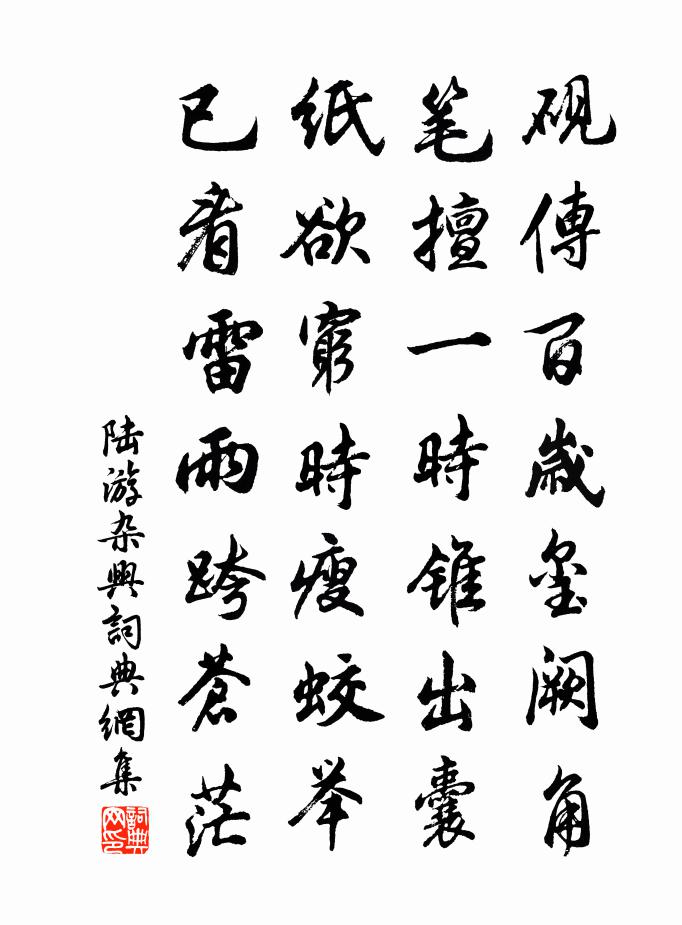 砚傳百歲璽阙角
笔擅一時锥出囊
紙欲窮時瘦蛟举
已看雷雨跨蒼茫
陆游杂興詞典網集
詞典网印